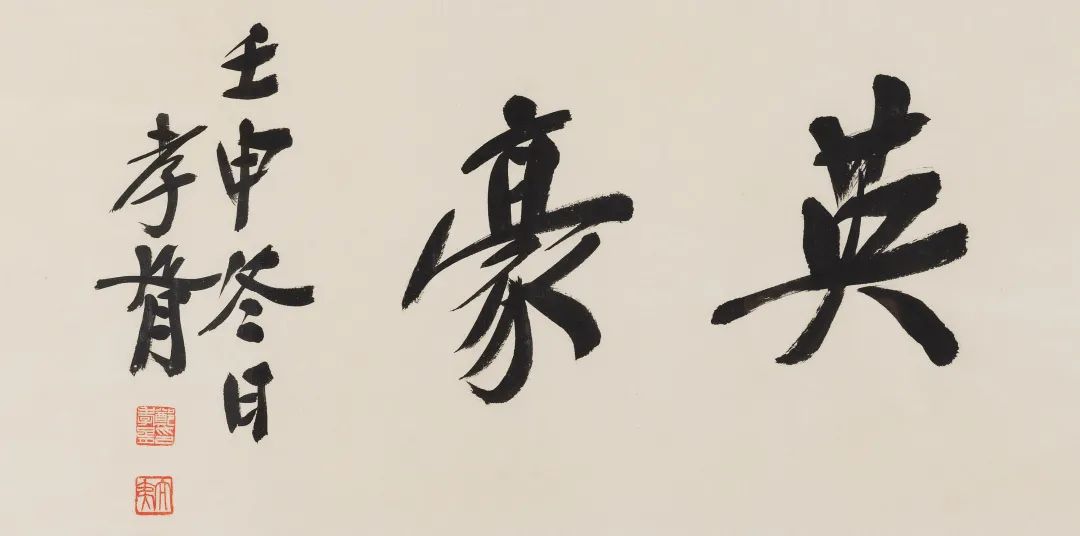 英豪
壬申冬日
孝胥